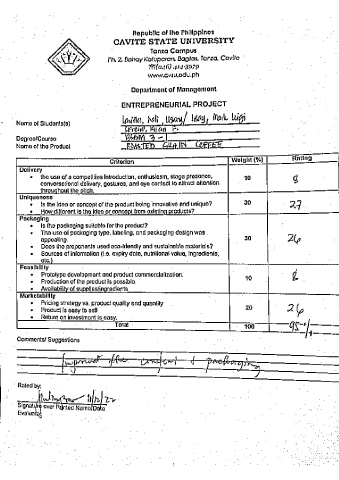 Republic of the Philippines
CAVITE STATE UNIVERSITY
Tanza Campus
Ph. 2, Bahay Katuparan, Bagtas, Tanza, Cavite
(046) 414-3979
www.cvsu.edu.ph
Department of Management
ENTREPRENEURIAL PROJECT
Name of Student(s)
Degree/Course BSBM 3-1
Name of the Product ROASTED GRAIN COFFEE
Criterion Weight (%) Rating
Delivery
• the use of a competitive introduction, enthusiasm, stage presence, conversational delivery, gestures, and eye contact to attract attention throughout the pitch. 10 8
Uniqueness
• Is the idea or concept of the product being innovative and unique?
• How different is the idea or concept from existing products? 27
Packaging
• Is the packaging suitable for the product?
• The use of packaging type, labeling, and packaging design was appealing.
• Does the proponents used eco-friendly and sustainable materials?
• Sources of information (i.e. expiry date, nutritional value, ingredients, etc.) 30 26
Feasibility
• Prototype development and product commercialization.
• Production of the product is possible.
• Availability of supplies/ingredients 10 8
Marketability
• Pricing strategy vs. product quality and quantity
• Product is easy to sell
• Return on investment is easy. 20 26
Total 100 95%
Comments/ Suggestions
Improve the & packaging
Rated by:
Signature over Printed Name/Date
Evaluator